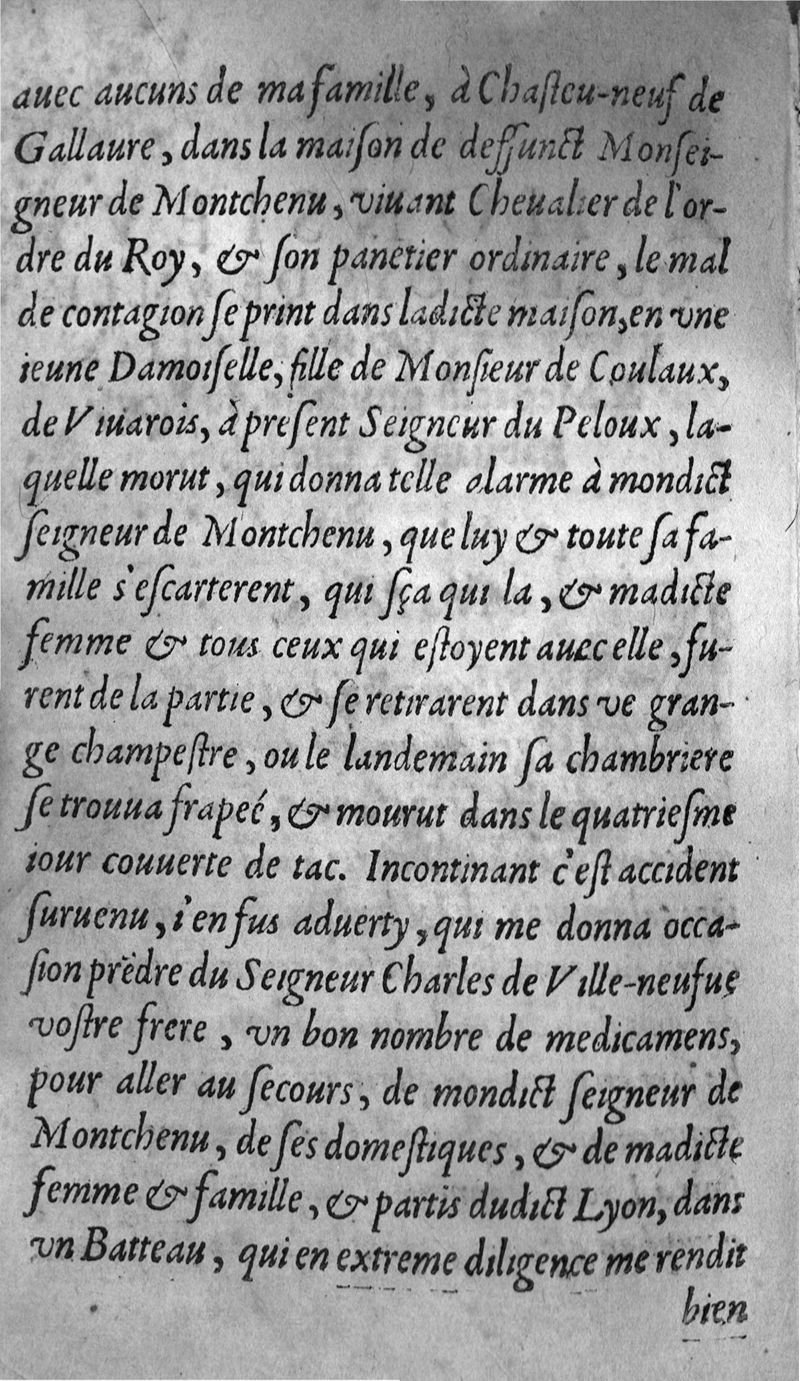 auec aucuns de ma famille, à Chaſteu-neuf de
Gallaure, dans la maiſon de deffunct Monſei-
gneur de Montchenu, viuant Cheualier de l'or-
dre du Roy, & ſon panetier ordinaire, le mal
de contagion ſe print dans ladicte maiſon, en vne
ieune Damoiſelle, fille de Monſieur de Coulaux,
de Viuarois, à preſent Seigneur du Peloux, la-
quelle morut, qui donna telle alarme à mondict
ſeigneur de Montchenu, que luy & toute ſa fa-
mille s'eſcarterent, qui ſça qui la, & madicte
femme & tous ceux qui eſtoyent auec elle, fu-
rent de la partie, & ſe retirarent dans ve gran-
ge champeſtre, ou le landemain ſa chambriere
ſe trouua frapeé, & mourut dans le quatrieſme
iour couuerte de tac. Incontinant c'eſt accident
ſuruenu, i'en fus aduerty, qui me donna occa-
ſion prẽdre du Seigneur Charles de Ville-neufue
voſtre frere, vn bon nombre de medicamens,
pour aller au ſecours, de mondict ſeigneur de
Montchenu, de ſes domeſtiques, & de madicte
femme & famille, & partis dudict Lyon, dans
vn Batteau, qui en extreme diligence me rendit
bien